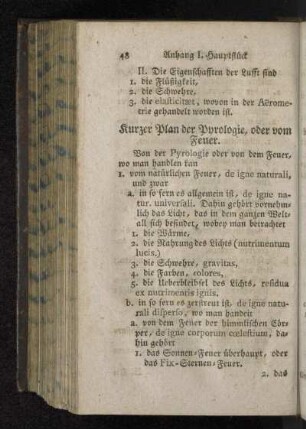 48 Anhang I. Hauptstück
II. Die Eigenschafften der Lufft sind
1. die Flüßigkeit,
2. die Schwehre,
3. die elasticitæt, wovon in der Aërome-
trie gehandelt worden ist.
Kurzer Plan der Pyrologie, oder vom
Feuer.
Von der Pyrologie oder von dem Feuer,
wo man handlen kan
1. vom natürlichen Feuer, de igne naturali,
und zwar
a. in so fern es allgemein ist, de igne na-
tur. universali. Dahin gehört vornehm-
lich das Licht, das in dem ganzen Welt-
all sich befindet, wobey man betrachtet
1. die Wärme,
2. die Nahrung des Lichts (nutrimentum
lucis.)
3. die Schwehre, gravitas,
4. die Farben, colores,
5. die Ueberbleibsel des Lichts, residua
ex nutrimentis ignis.
b. in so fern es zerstreut ist, de igne natu-
rali disperso, wo man handelt
a. von dem Feuer der himmlischen Cör-
per, de igne corporum cœlestium, da-
hin gehört
1. das Sonnen-Feuer überhaupt, oder
das Fix-Sternen-Feuer.
2. das